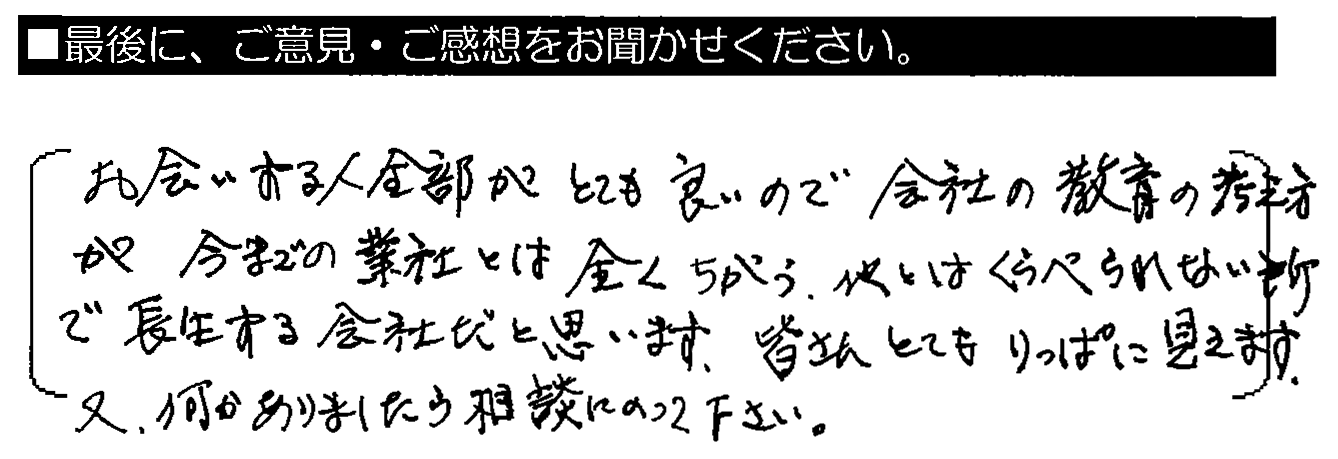 ■最後に、ご意見・ご感想をお聞かせください。
お会いする人全部がとても良いので会社の教育の考え方
が今までの業社とは全くちがう、他とはくらべられない所
で長生する会社だと思います、皆さんとてもりっぱに見えます、
又、何かありましたら相談にのって下さい。